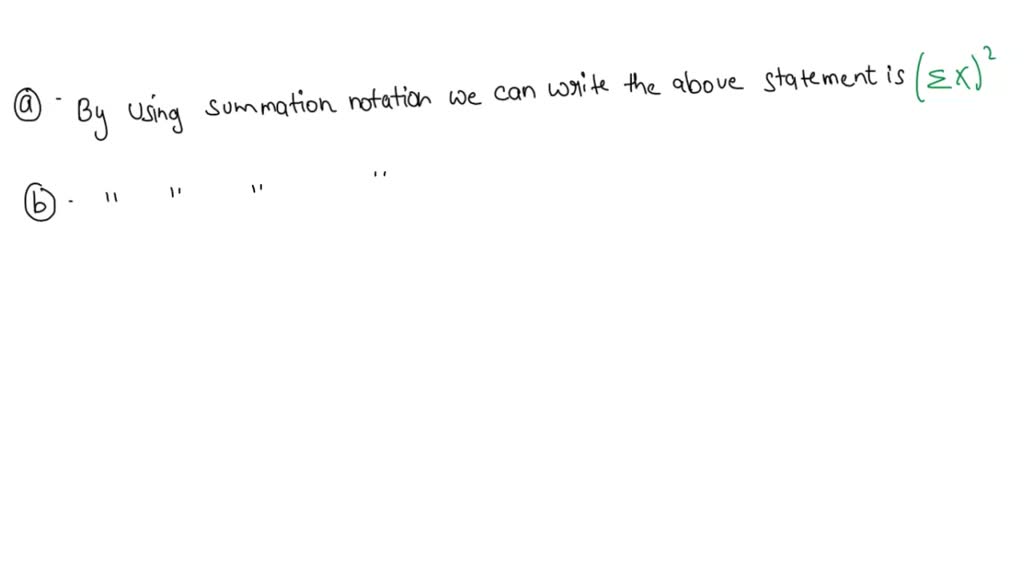 ⓐ - By using summation notation we can write the above statement is (ΣX)²
ⓑ - " " " "